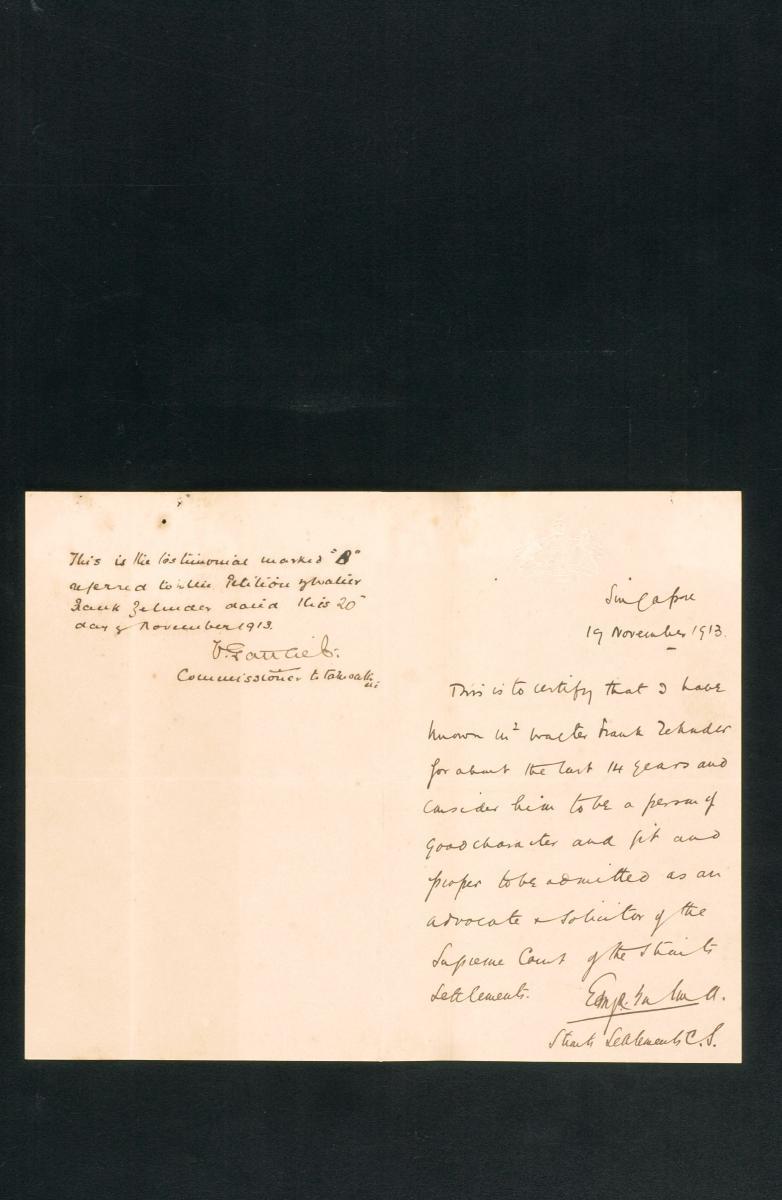 This is the testimonial marked "A"
referred to in the Petition of Walter
Frank Zehnder dated this 20th
day of November 1913.
Commissioner to take oaths
Singapore
19 November 1913.
This is to certify that I have
known Mr Walter Frank Zehnder
for about the last 14 years and
consider him to be a person of
good character and fit and
proper to be admitted as an
advocate & solicitor of the
Supreme Court of the Straits
Settlements.
Straits Settlements C.S.